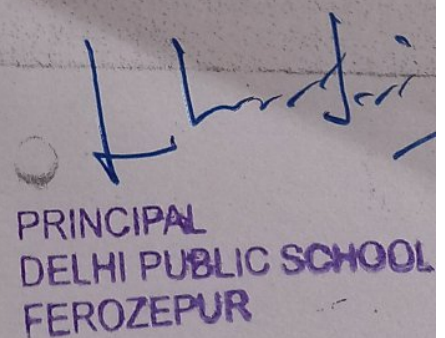 PRINCIPAL
DELHI PUBLIC SCHOOL
FEROZEPUR